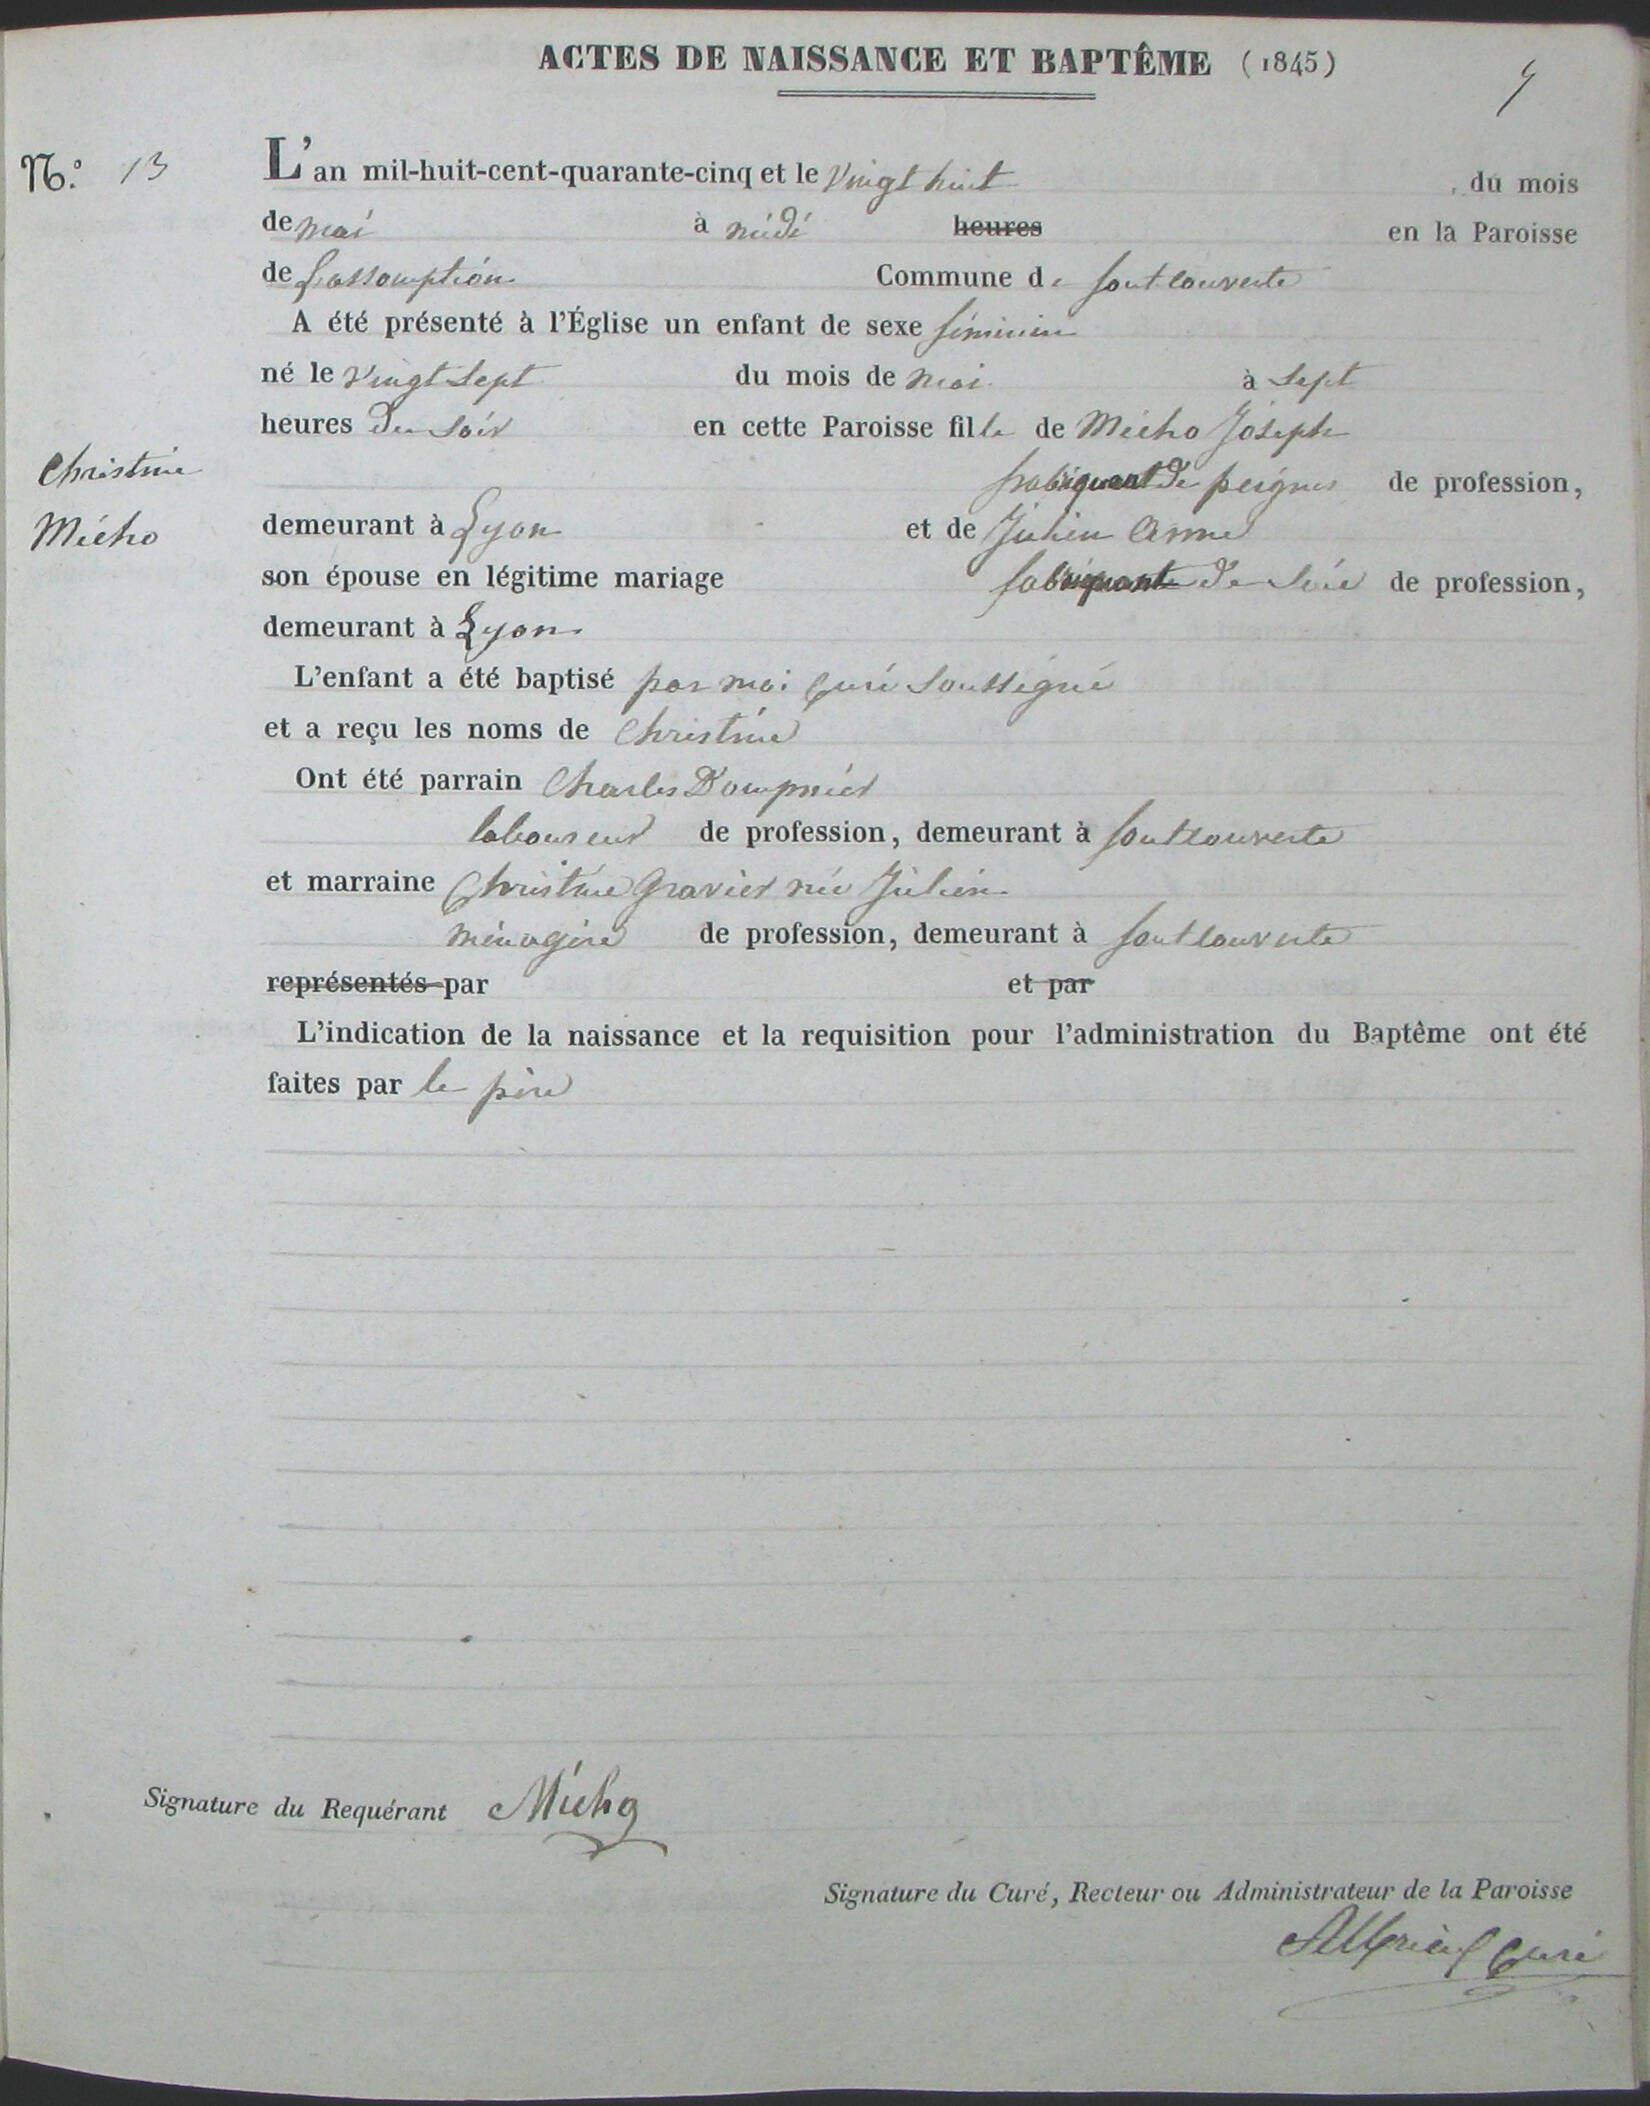 ACTES DE NAISSANCE ET BAPTÊME (1845)
N.o 13
L'an mil-huit-cent-quarante-cinq et le vingt huit du mois
de mai à midi heures en la Paroisse
de Lassomption Commune de fontcouverte
A été présenté à l'Église un enfant de sexe féminin
né le vingt sept du mois de mai à sept
heures du soir en cette Paroisse fille de Micho Joseph
fabriquant de peignes de profession,
Christine
Micho
demeurant à Lyon et de Julien Anne
son épouse en légitime mariage fabriquante de soie de profession,
demeurant à Lyon
L'enfant a été baptisé par moi Curé soussigné
et a reçu les noms de Christine
Ont été parrain Charles Dompnier
laboureur de profession, demeurant à fontcouverte
et marraine Christine Gravier née Julien
ménagère de profession, demeurant à fontcouverte
représentés par et par
L'indication de la naissance et la requisition pour l'administration du Baptême ont été
faites par le père
Signature du Requérant Micho
Signature du Curé, Recteur ou Administrateur de la Paroisse
Curé